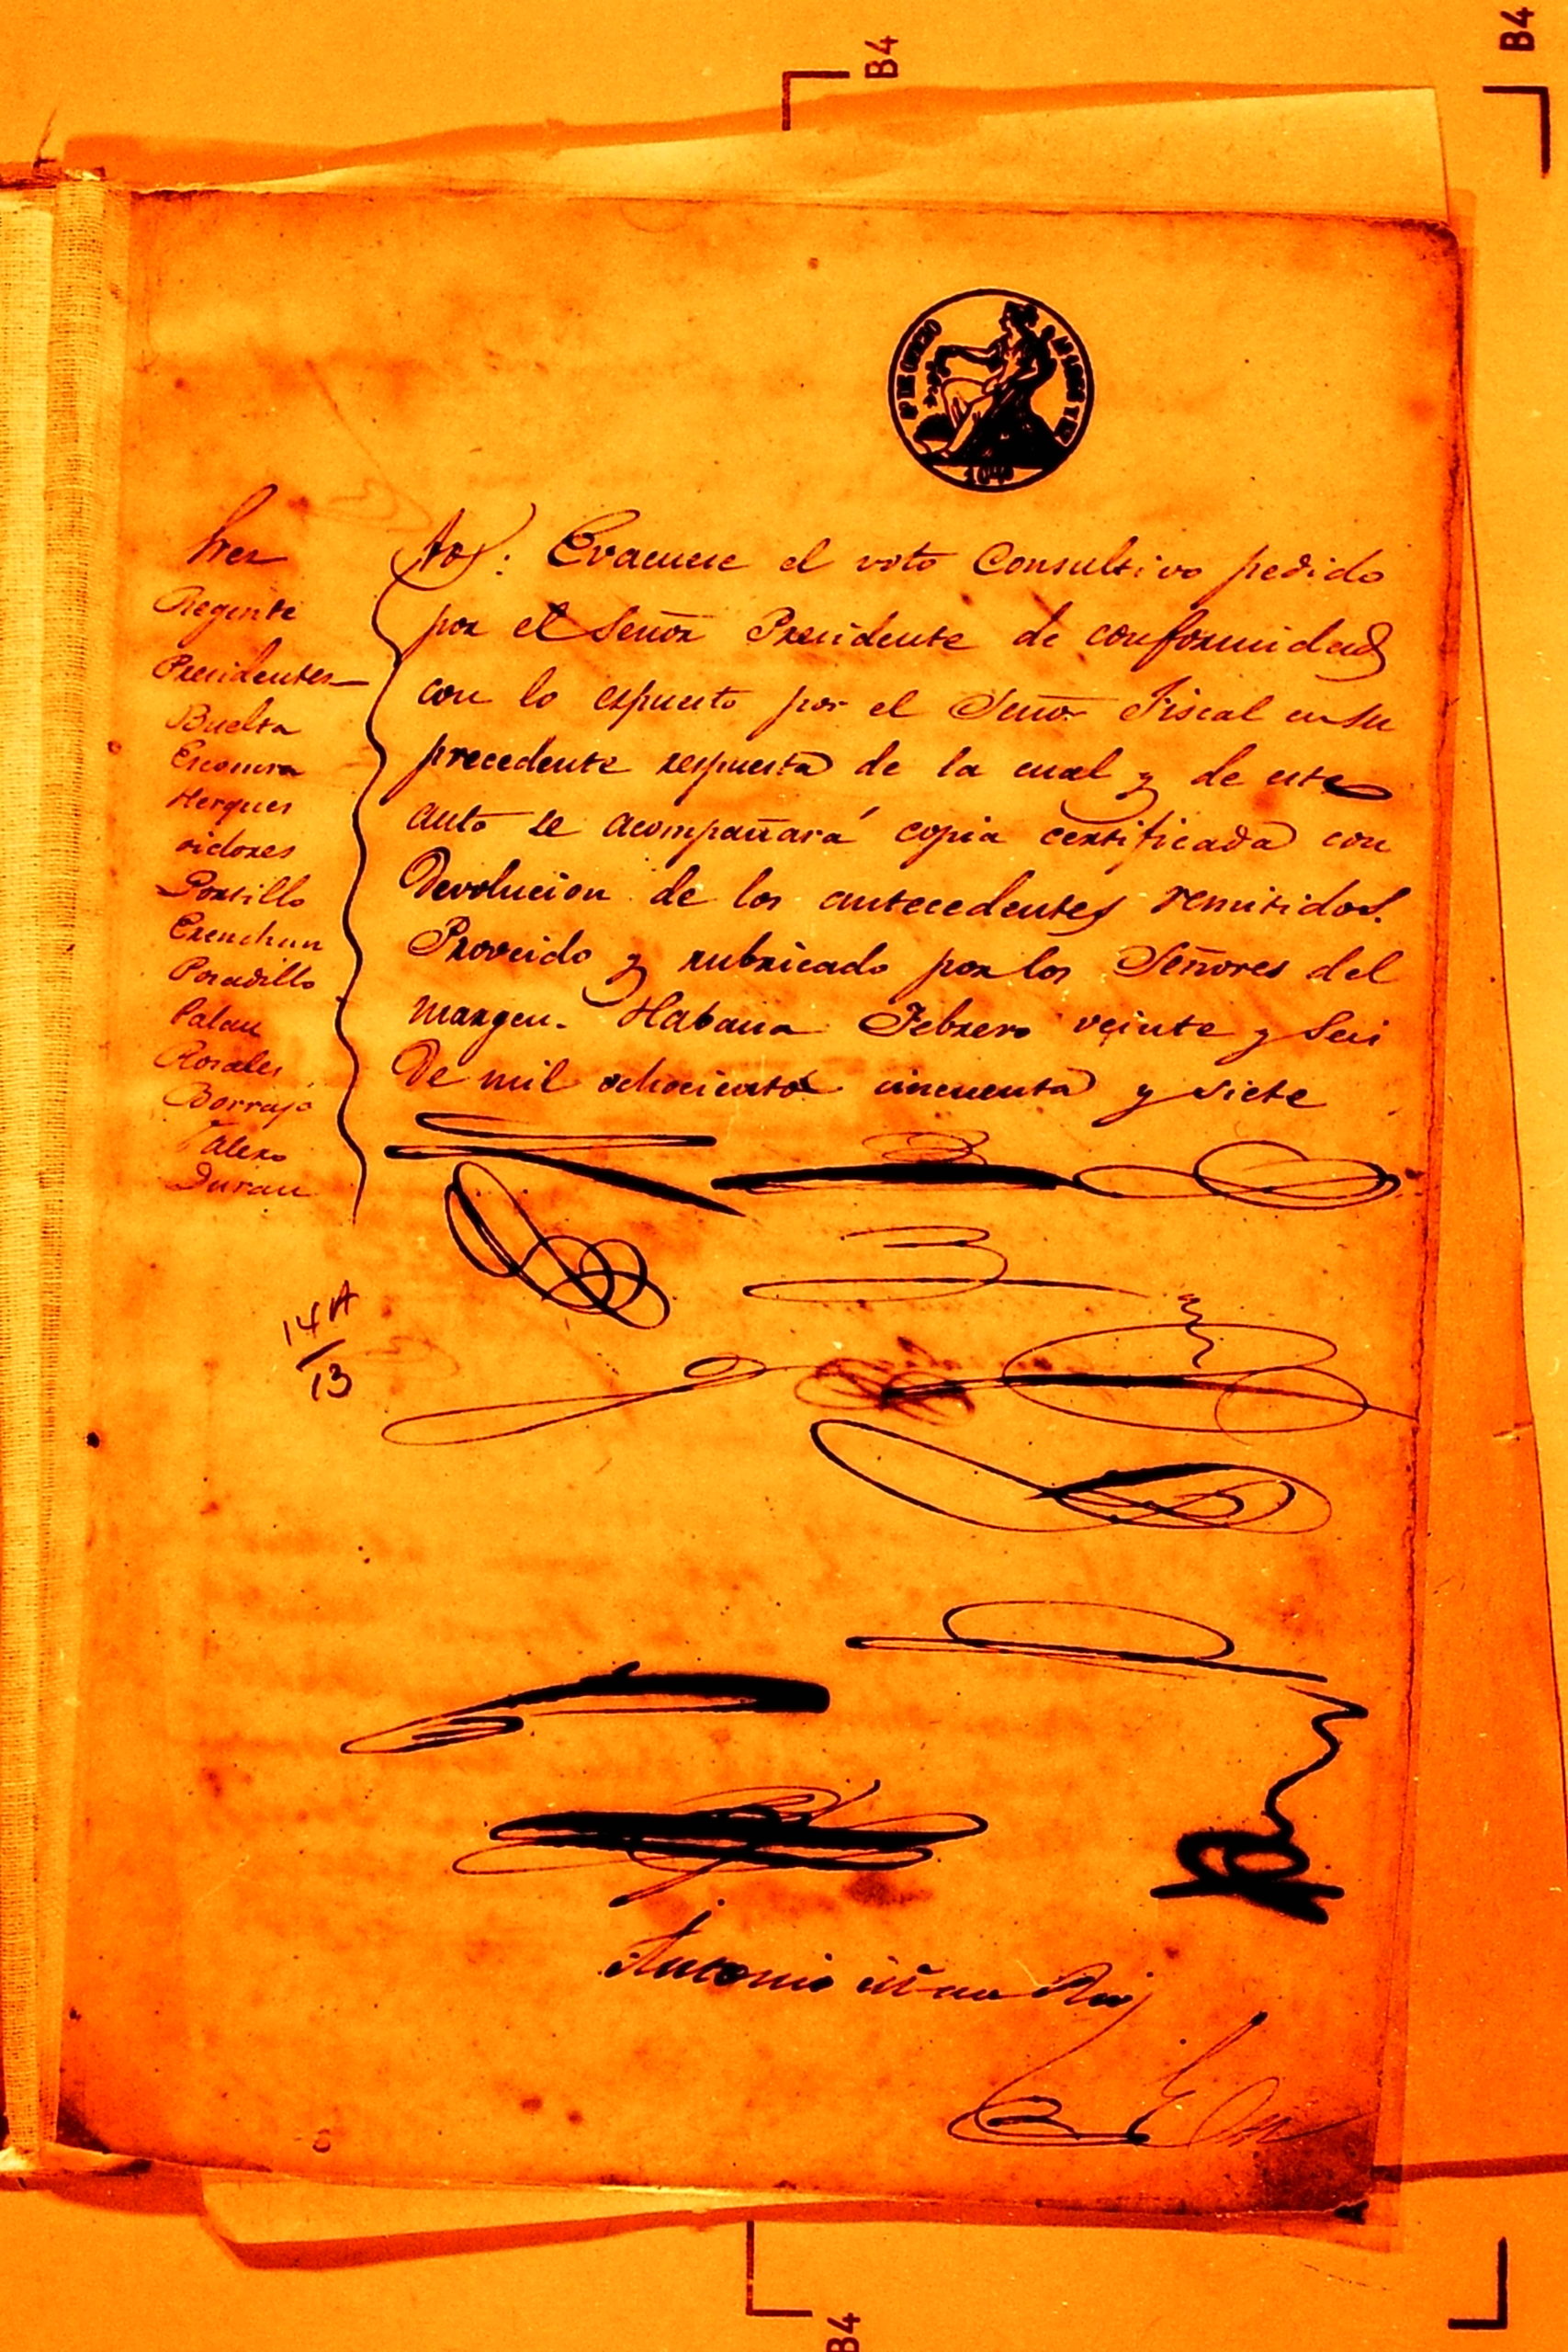 B4
B4
Sres
Regente
Presidentes
Buelta
Escosura
Herques
oidores
Portillo
Erenchun
Posadillo
Palau
Rosales
Borrajo
Valero
Duran
Evacuese el voto Consultivo pedido
por el Señor Presidente de conformidad
con lo espuesto por el Señor Fiscal en su
precedente respuesta de la cual y de este
auto se acompañará copia certificada con
devolucion de los antecedentes remitidos.
Proveido y rubricado por los Señores del
margen. Habana Febrero veinte y seis
de mil ochocientos cincuenta y siete
14A
13
Antonio
B4